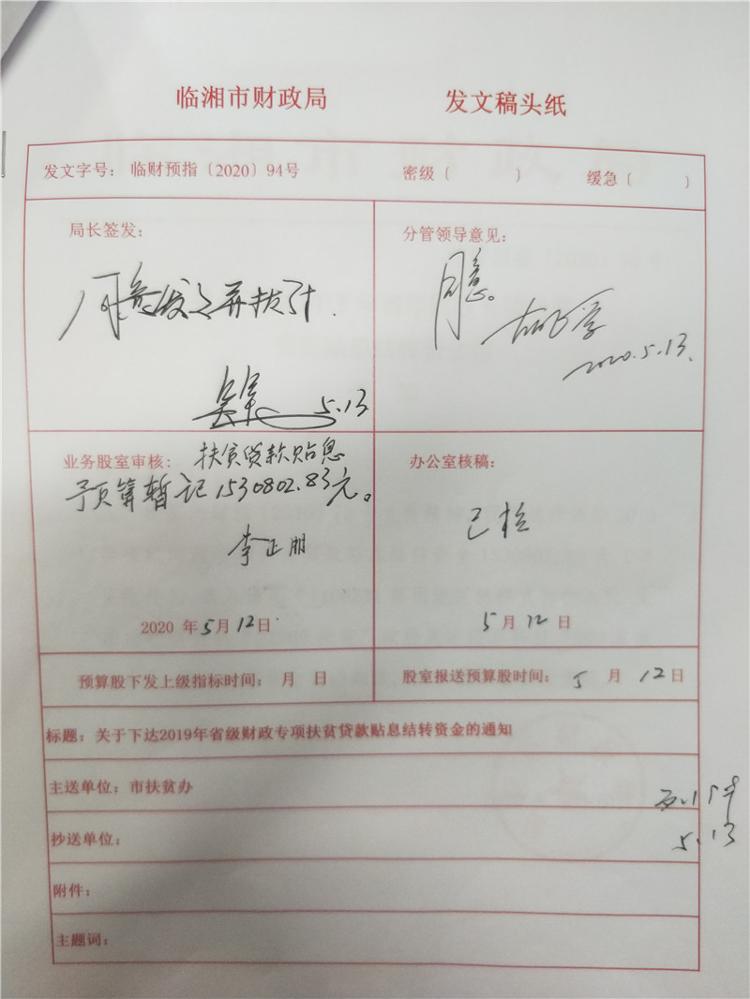 临湘市财政局 发文稿头纸
发文字号： 临财预指〔2020〕94号 密级〔 〕 缓急〔 〕
局长签发： 分管领导意见：
同意。
2020.5.13.
5.13
业务股室审核： 扶贫贷款贴息
预算暂记1530802.83元。
李正朋
2020 年5月12日
办公室核稿：
已检
5月12日
预算股下发上级指标时间： 月 日 股室报送预算股时间： 5 月 12日
标题：关于下达2019年省级财政专项扶贫贷款贴息结转资金的通知
主送单位：市扶贫办
抄送单位：
5.13
附件：
主题词：